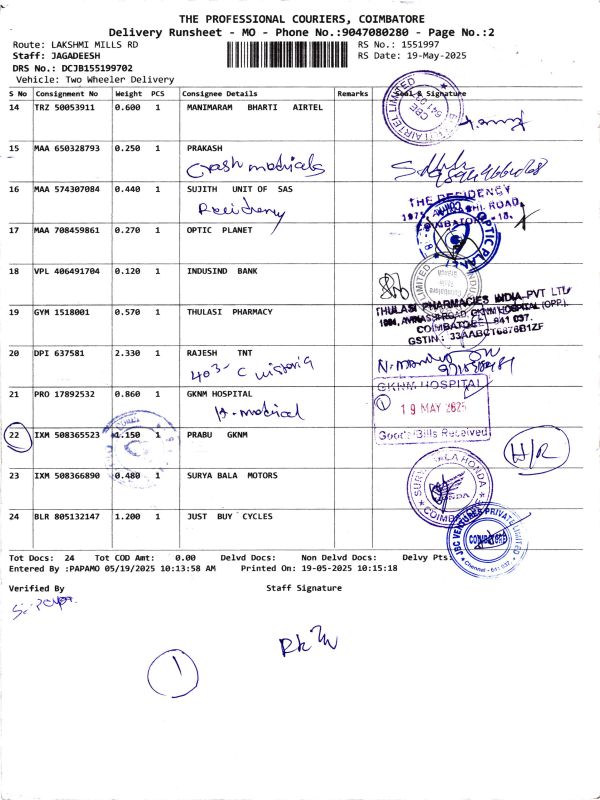 THE PROFESSIONAL COURIERS, COIMBATORE
Delivery Runsheet - MO - Phone No.:9047080280 - Page No.:2
Route: LAKSHMI MILLS RD
Staff: JAGADEESH
DRS No.: DCJB155199702
Vehicle: Two Wheeler Delivery
RS No.: 1551997
RS Date: 19-May-2025
S No Consignment No Weight PCS Consignee Details Remarks Seal & Signature
14 TRZ 50053911 0.600 1 MANIMARAM BHARTI AIRTEL
15 MAA 650328793 0.250 1 PRAKASH
16 MAA 574307084 0.440 1 SUJITH UNIT OF SAS
Residency
THE RESIDENCY
COIMBATORE - 18.
17 MAA 708459861 0.270 1 OPTIC PLANET
OPTIC PLANET
18 VPL 406491704 0.120 1 INDUSIND BANK
19 GYM 1518001 0.570 1 THULASI PHARMACY
THULASI PHARMACIES INDIA PVT LTD
1094, AVINASHI ROAD, GKNM HOSPITAL (OPP.)
COIMBATORE - 641 037.
GSTIN : 33AABCT6676B1ZF
20 DPI 637581 2.330 1 RAJESH TNT
403- C
21 PRO 17892532 0.860 1 GKNM HOSPITAL
GKNM HOSPITAL
1 19 MAY 2025
Goods/Bills Received
22 IXM 508365523 1.150 1 PRABU GKNM
H/R
23 IXM 508366890 0.480 1 SURYA BALA MOTORS
SURYA BALA HONDA
COIMBATORE
24 BLR 805132147 1.200 1 JUST BUY CYCLES
JBC VENTURES PRIVATE LIMITED
COIMBATORE
Tot Docs: 24 Tot COD Amt: 0.00 Delvd Docs: Non Delvd Docs: Delvy Pts:
Entered By :PAPAMO 05/19/2025 10:13:58 AM Printed On: 19-05-2025 10:15:18
Verified By Staff Signature
1